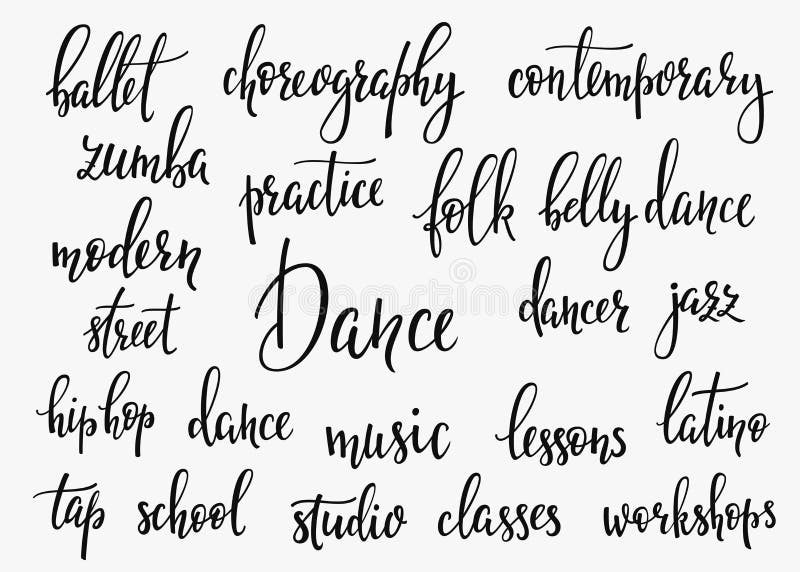 ballet choreography contemporary
zumba practice folk belly dance
modern Dance dancer jazz
street
hip hop dance music lessons latino
tap school studio classes workshops
dreamstime